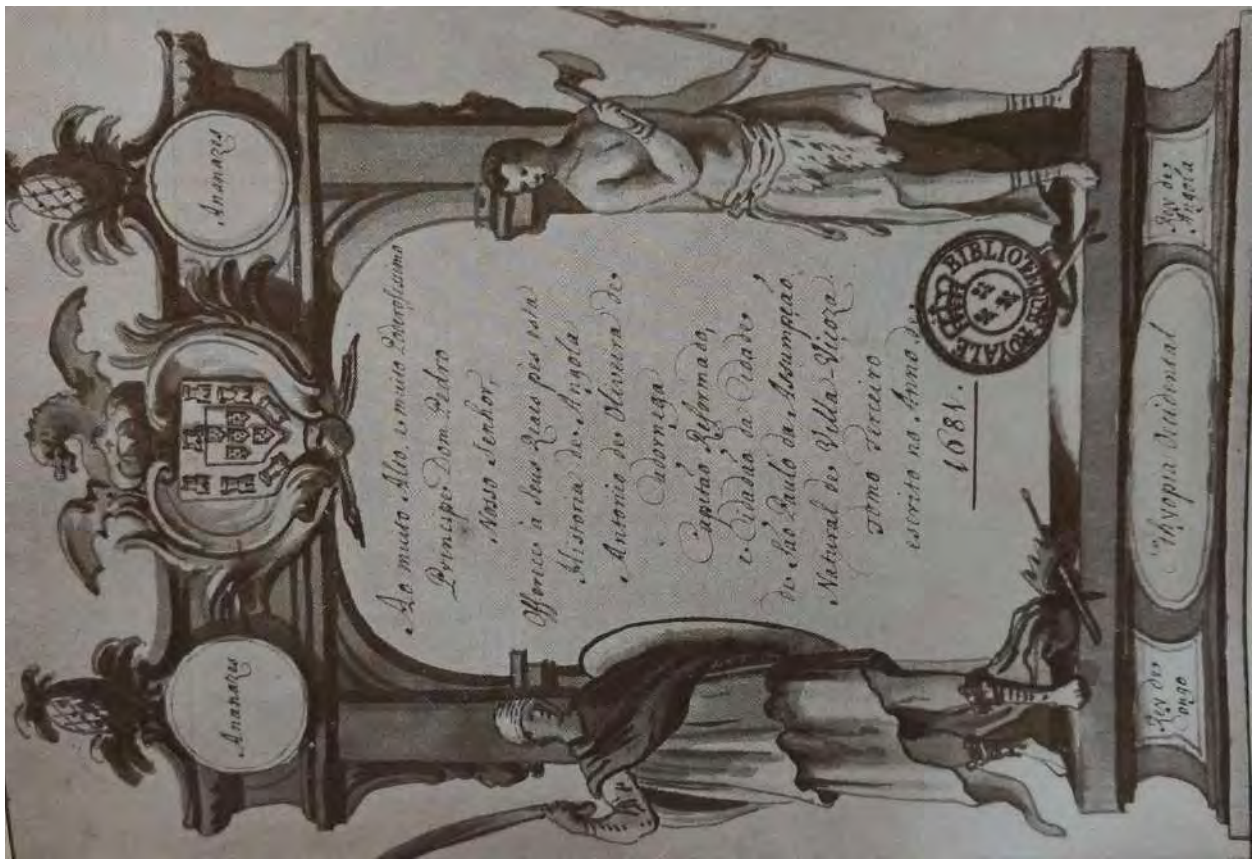 Ananazes
Ananazes
Ao muito Alto, e muito Poderosissimo
Principe Dom Pedro
Nosso Senhor,
Offerece a Seus Reaes pes esta
Historia de Angola
Antonio de Oliveira de
Cadornega
Capitaõ Reformado,
e Cidadaõ da Cidade
de Saõ Paulo da Assumpçaõ
Natural de Villa-Viçoza.
Tomo Terceiro
escrito no Anno de
1681.
BIBLIOTHEQUE ROYALE
Rey de
ongo
Ethyopia Occidental
Rey de
Angola